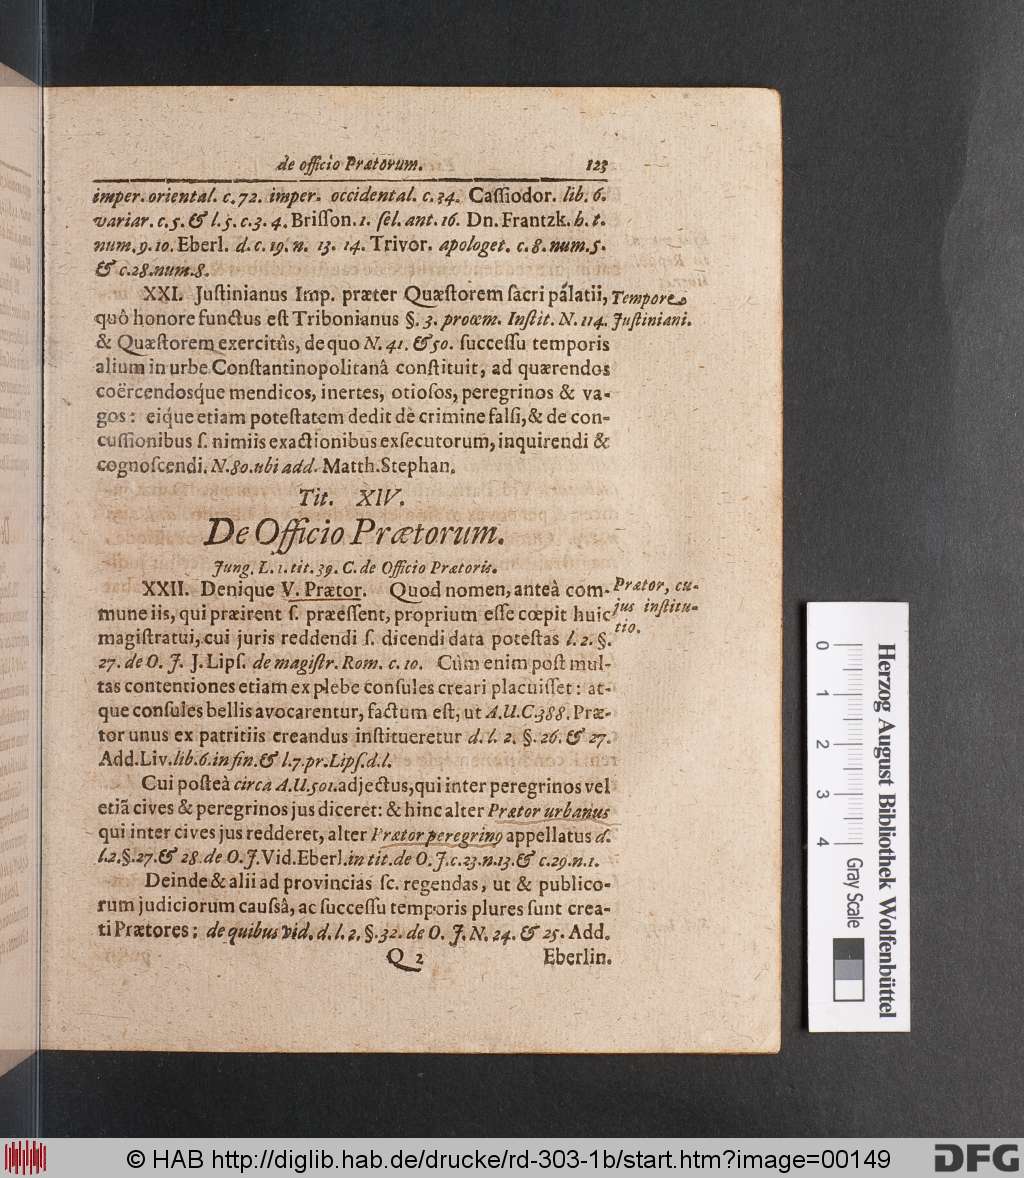 de officio Prætorum. 123
imper. oriental. c. 72. imper. occidental. c. 34. Caſſiodor. lib. 6.
variar. c. 5. & l. 5. c. 3. 4. Briſſon. 1. ſel. ant. 16. Dn. Frantzk. h. t.
num. 9. 10. Eberl. d. c. 19. n. 13. 14. Trivor. apologet. c. 8. num. 5.
& c. 28. num. 8.
XXI. Juſtinianus Imp. præter Quæſtorem ſacri palatii, Tempore
quô honore functus eſt Tribonianus §. 3. proœm. Inſtit. N. 114. Juſtiniani.
& Quæſtorem exercitûs, de quo N. 41. & 50. ſucceſſu temporis
alium in urbe Conſtantinopolitanâ conſtituit, ad quærendos
coërcendosq́ue mendicos, inertes, otioſos, peregrinos & va-
gos: eiq́ue etiam poteſtatem dedit de crimine falſi, & de con-
cuſſionibus ſ. nimiis exactionibus exſecutorum, inquirendi &
cognoſcendi. N. 80. ubi add. Matth. Stephan.
Tit. XIV.
De Officio Prætorum.
Jung. L. 1. tit. 39. C. de Officio Prætoris.
XXII. Denique V. Prætor. Quod nomen, anteà com- Prætor, cu-
mune iis, qui præirent ſ. præeſſent, proprium eſſe cœpit huic jus inſtitu-
magiſtratui, cui juris reddendi ſ. dicendi data poteſtas l. 2. §. tio.
27. de O. J. J. Lipſ. de magiſtr. Rom. c. 10. Cùm enim poſt mul-
tas contentiones etiam ex plebe conſules creari placuiſſet: at-
que conſules bellis avocarentur, factum eſt, ut A.U.C. 388. Præ-
tor unus ex patritiis creandus inſtitueretur d. l. 2. §. 26. & 27.
Add. Liv. lib. 6. in fin. & l. 7. pr. Lipſ. d. l.
Cui poſteà circa A.U. 501. adjectus, qui inter peregrinos vel
etiã cives & peregrinos jus diceret: & hinc alter Prætor urbanus
qui inter cives jus redderet, alter Prætor peregrinꝰ appellatus d.
l. 2. §. 27. & 28. de O. J. Vid. Eberl. in tit. de O. J. c. 23. n. 13. & c. 29. n. 1.
Deinde & alii ad provincias ſc. regendas, ut & publico-
rum judiciorum cauſsâ, ac ſucceſſu temporis plures ſunt crea-
ti Prætores: de quibus vid. d. l. 2. §. 32. de O. J. N. 24. & 25. Add.
Q 2 Eberlin.
0 1 2 3 4 Gray Scale
Herzog August Bibliothek Wolfenbüttel
© HAB http://diglib.hab.de/drucke/rd-303-1b/start.htm?image=00149
DFG